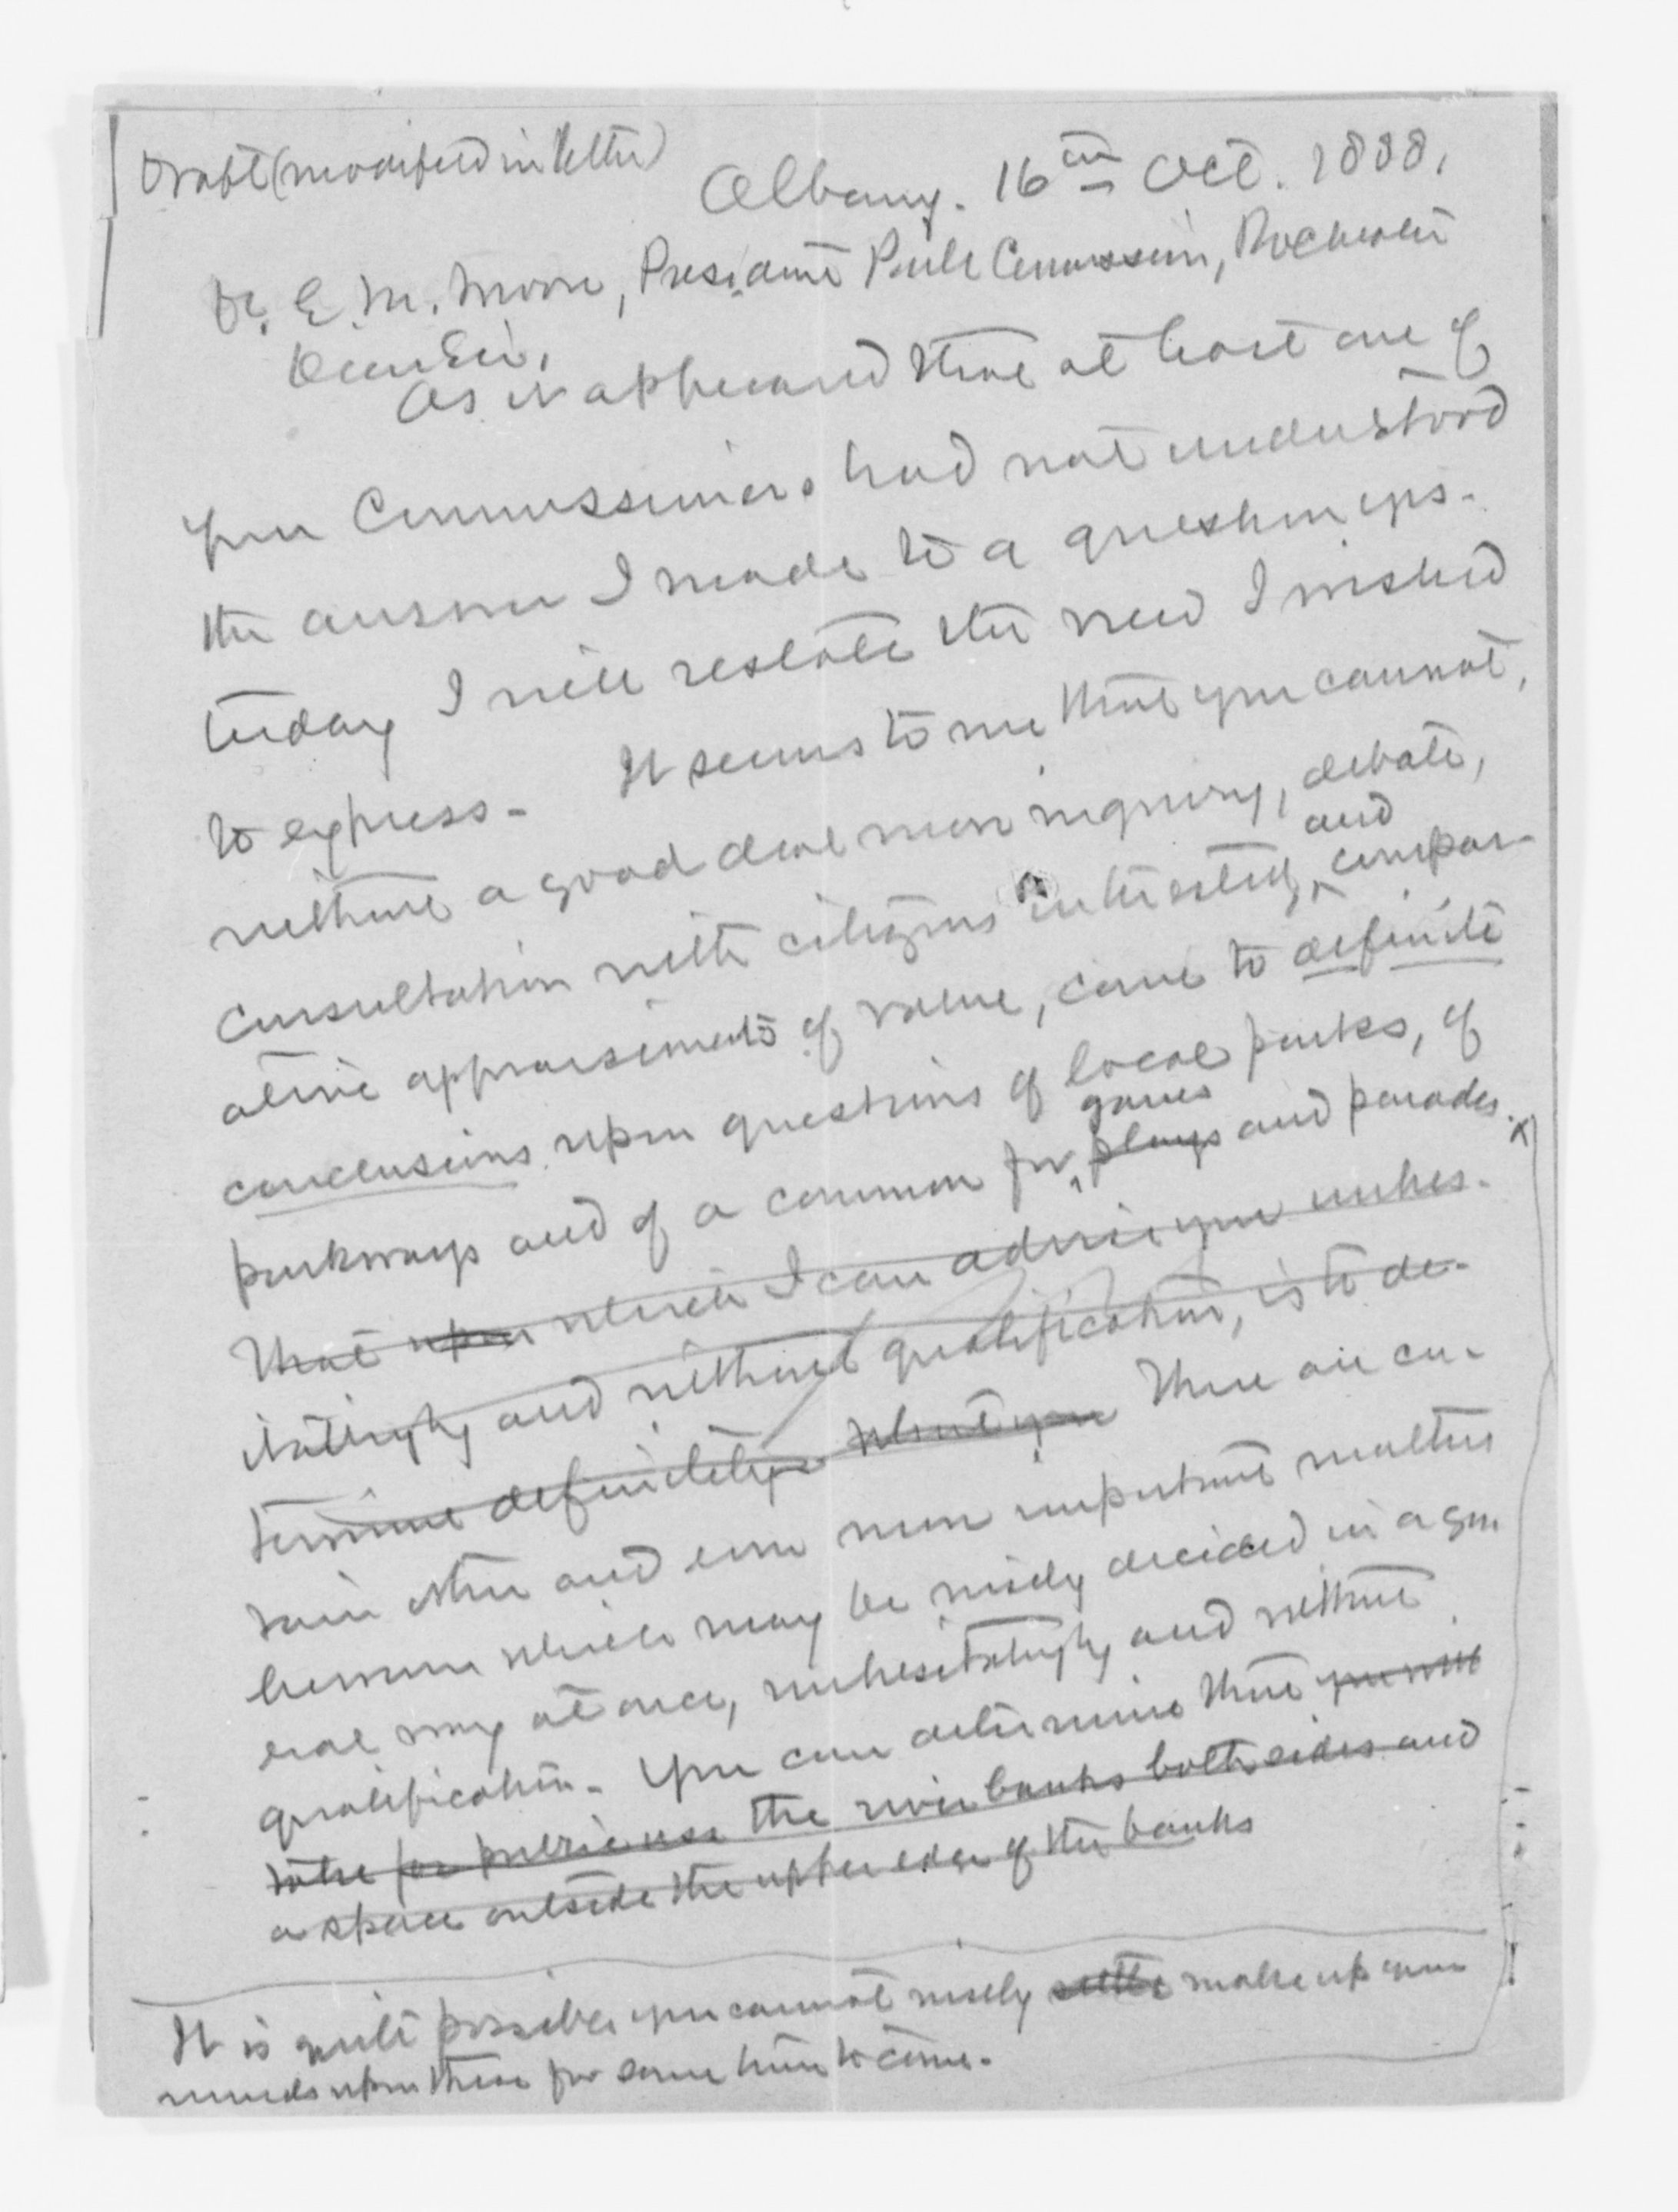 Draft (modified in letter)
Albany. 16th Oct. 1888.
Dr. E. M. Moore, President Park Commission, Rochester
Dear Sir,
As it appeared that at least one of
your Commissioners had not understood
the answer I made to a question yes-
terday I will restate the view I wished
to express. It seems to me that you cannot,
without a good deal more inquiry, debate,
and
consultation with citizens interested, compar-
ative appraisements of value, come to definite
conclusions upon questions of local parks, of
games
parkways and of a common for plays and parades.
That upon which I can advise you unhes-
itatingly and without qualification, is to de-
termine definitely what you There are cer-
tain other and even more important matters
however which may be wisely decided in a gen
eral way at once, unhesitatingly and without
qualification. You can determine that you will
take for public use the river banks both sides and
a space outside the upper edge of the banks
It is quite possible you cannot wisely settle make up your
minds upon these for some time to come.